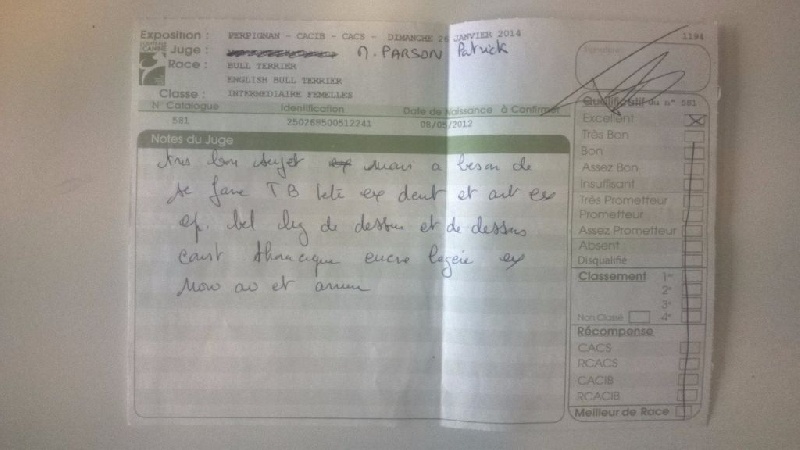 Exposition : PERPIGNAN - CACIB - CACS - DIMANCHE 26 JANVIER 2014
1194
Juge : M. PARSON Patrick
Race : BULL TERRIER
ENGLISH BULL TERRIER
Classe : INTERMEDIAIRE FEMELLES
N° Catalogue Identification Date de Naissance à Confirmer
581 250268500512241 08/05/2012
Notes du Juge
très bon sujet mais a besoin de
se faire TB tête ex dent et
bel de dessus et de dessous
thoracique encore légère ex
mouv av et arrière
Qualificatif du n° 581
Excellent
Très Bon
Bon
Assez Bon
Insuffisant
Très Prometteur
Prometteur
Assez Prometteur
Absent
Disqualifié
Classement 1er
2e
3e
Non Classé 4e
Récompense
CACS
RCACS
CACIB
RCACIB
Meilleur de Race